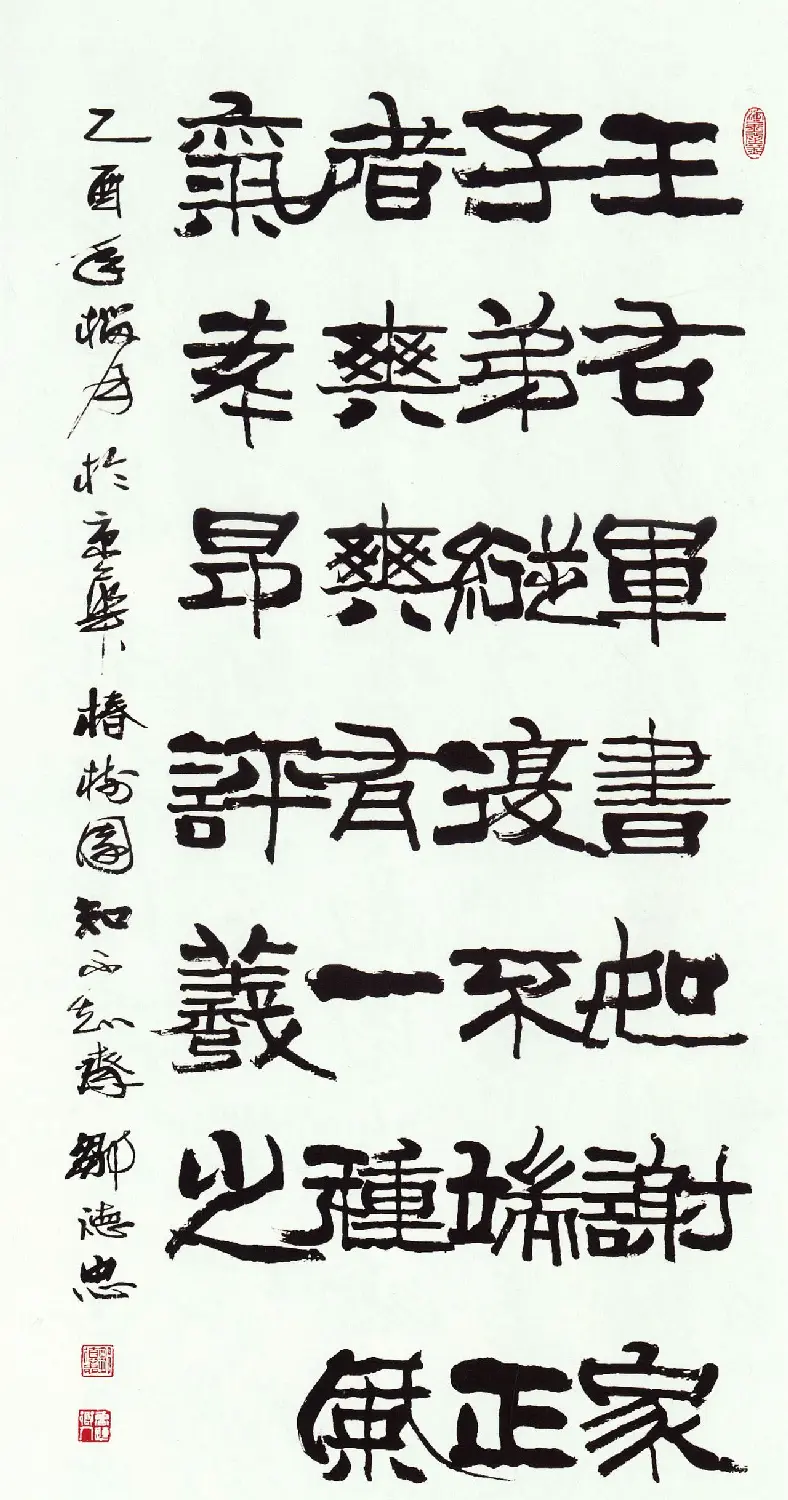 王右軍書如謝家
子弟縱復不端正
者爽爽有一種風
氣奉昂評羲之
乙酉年臘月於京華椿樹園知不知齋鄒德忠